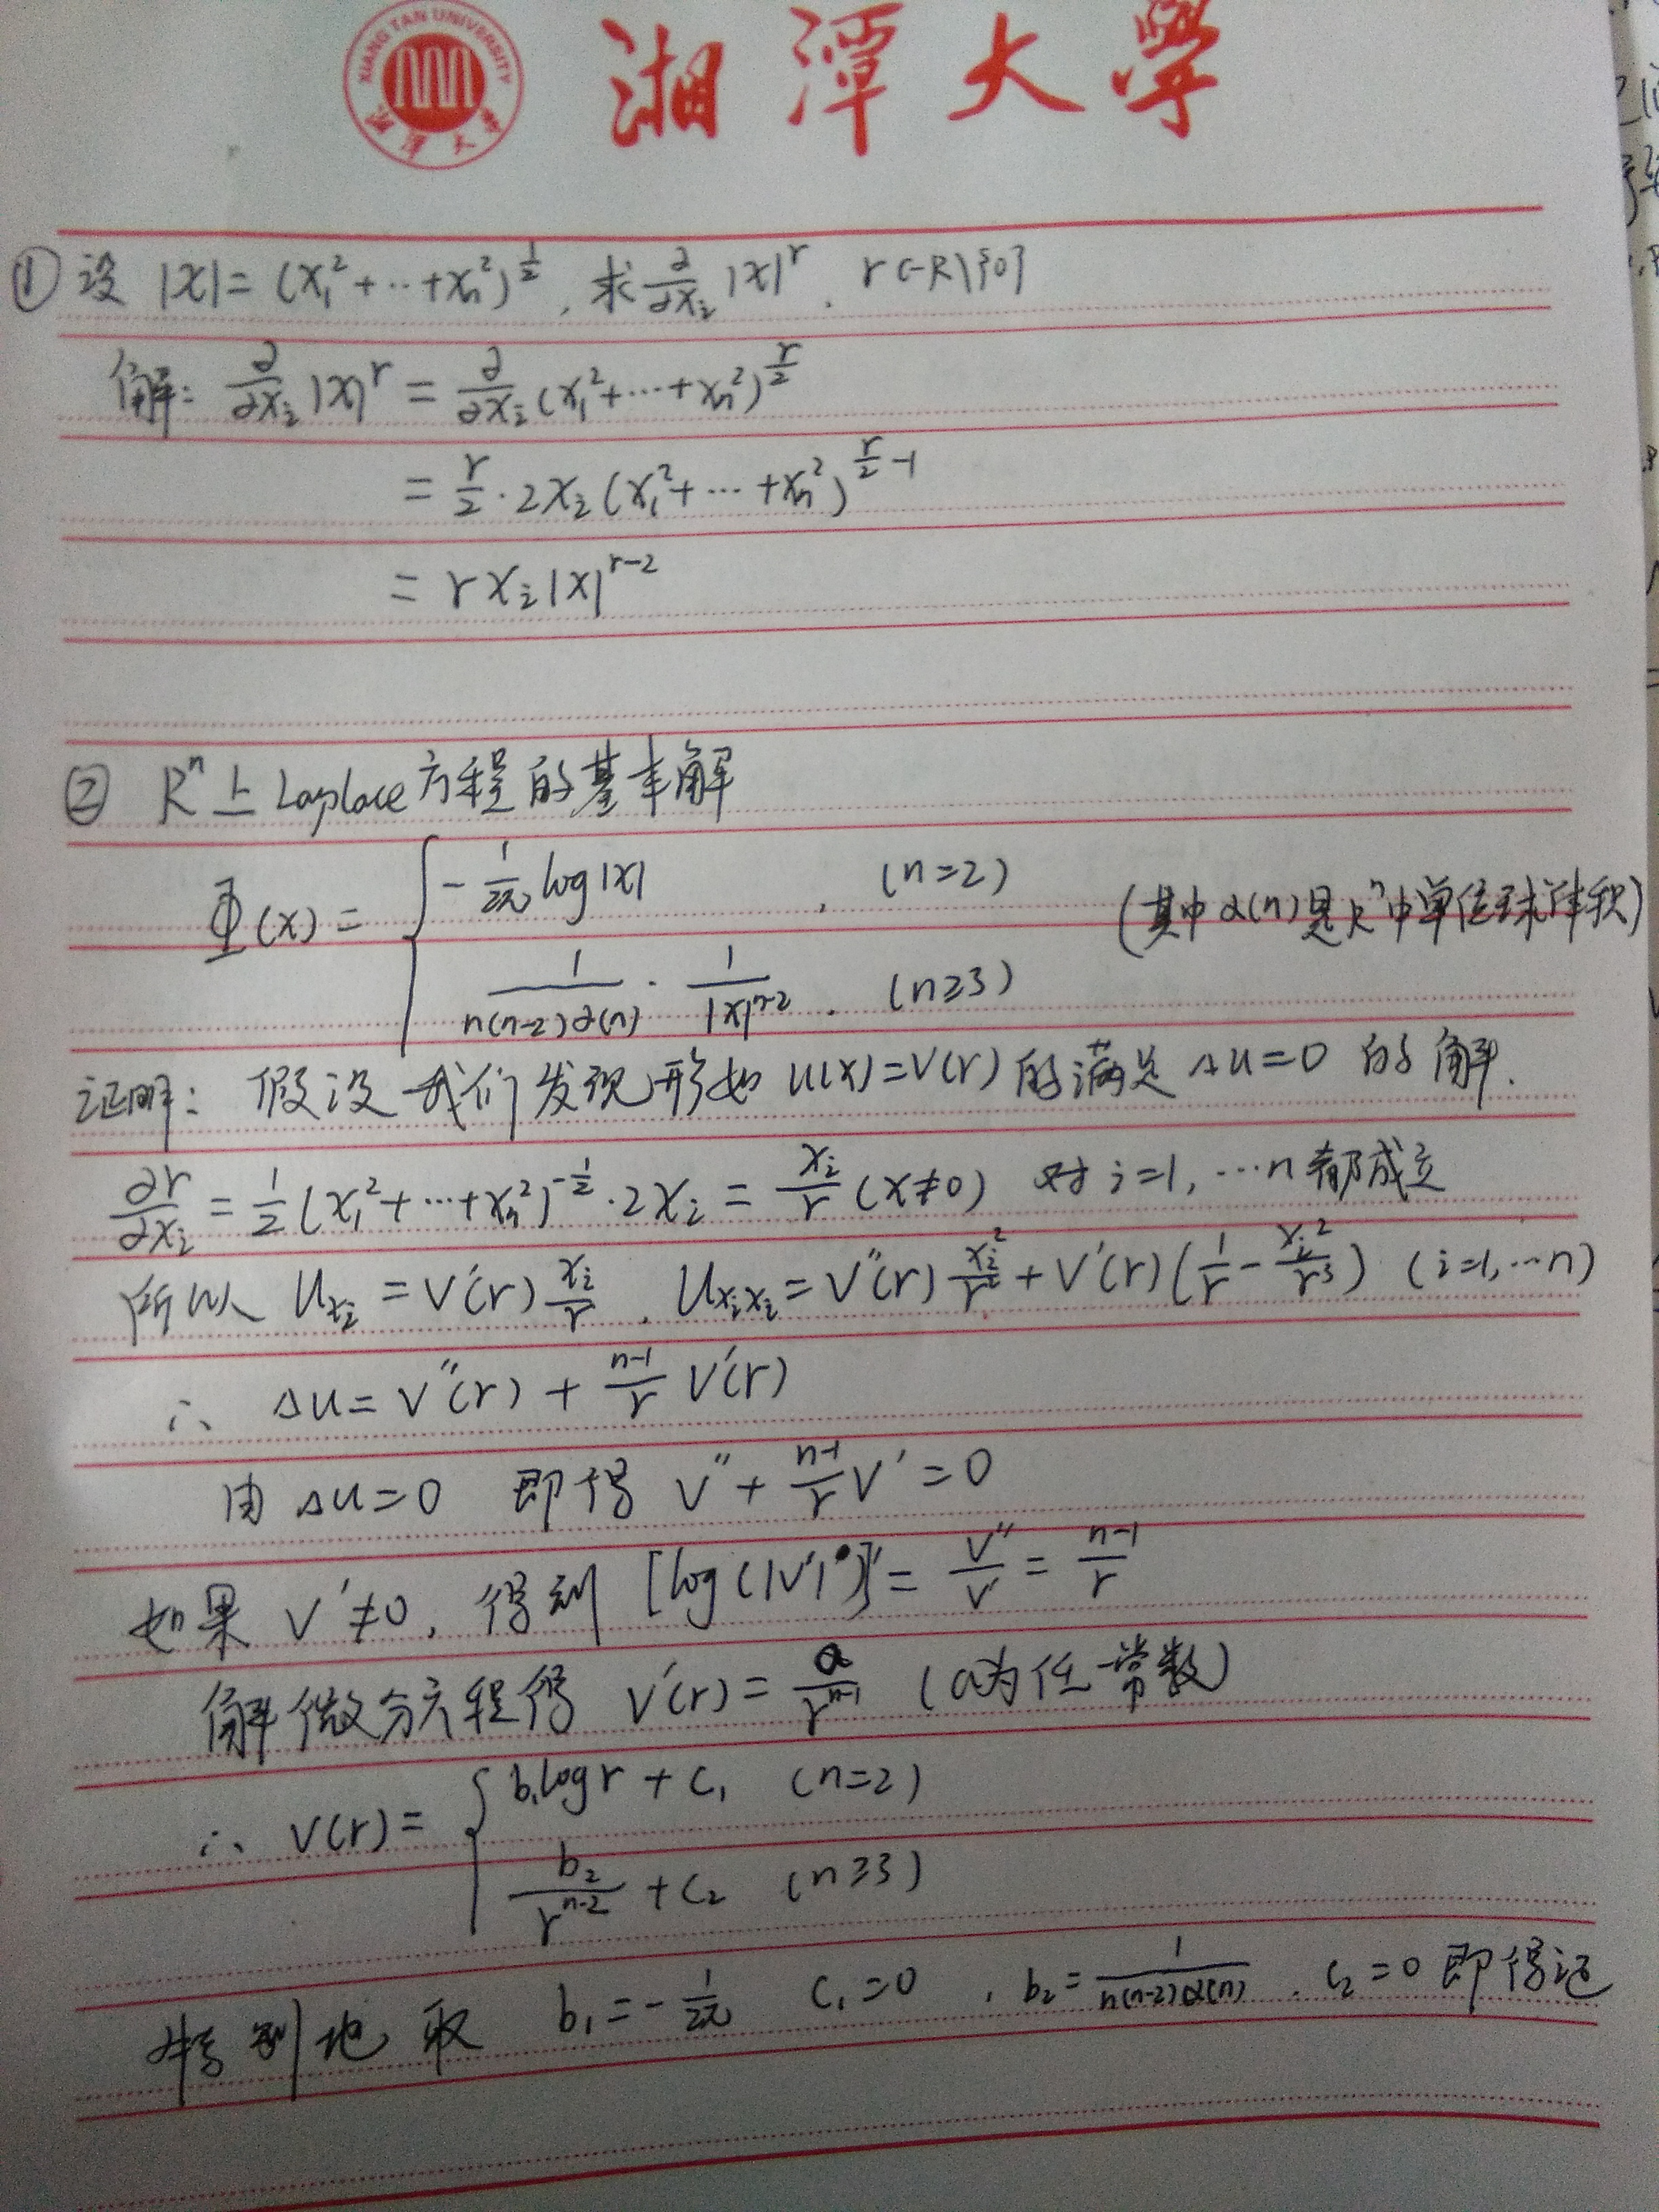 XIANG TAN UNIVERSITY
湘潭大学
湘潭大学
① 设 |x| = (x₁² + ⋯ + xₙ²)^{1/2}, 求 ∂/∂xᵢ |x|^r. r∈R\{0}
解: ∂/∂xᵢ |x|^r = ∂/∂xᵢ (x₁² + ⋯ + xₙ²)^{r/2}
= r/2 · 2xᵢ (x₁² + ⋯ + xₙ²)^{r/2 - 1}
= r xᵢ |x|^{r-2}
② Rⁿ上Laplace方程的基本解
Φ(x) = { -1/2π log|x| , (n=2)
(其中α(n)是Rⁿ中单位球体积)
1/(n(n-2)α(n)) · 1/|x|^{n-2} . (n≥3)
证明: 假设我们发现形如 u(x)=v(r) 的满足 Δu=0 的解.
∂r/∂xᵢ = 1/2 (x₁² + ⋯ + xₙ²)^{-1/2} · 2xᵢ = xᵢ/r (x≠0) 对 i=1, ⋯n 都成立
所以 u_{xᵢ} = v'(r) xᵢ/r , u_{xᵢxᵢ} = v''(r) xᵢ²/r² + v'(r)(1/r - xᵢ²/r³) (i=1, ⋯n)
∴ Δu = v''(r) + (n-1)/r v'(r)
由 Δu=0 即得 v'' + (n-1)/r v' = 0
如果 v'≠0, 得到 [log(|v'|)]' = v''/v' = (n-1)/r
解微分方程得 v'(r) = a/r^{n-1} (a为任一常数)
∴ v(r) = { b₁logr + c₁ (n=2)
b₂/r^{n-2} + c₂ (n≥3)
特别地取 b₁ = -1/2π c₁=0 , b₂ = 1/(n(n-2)α(n)) . c₂=0 即得证